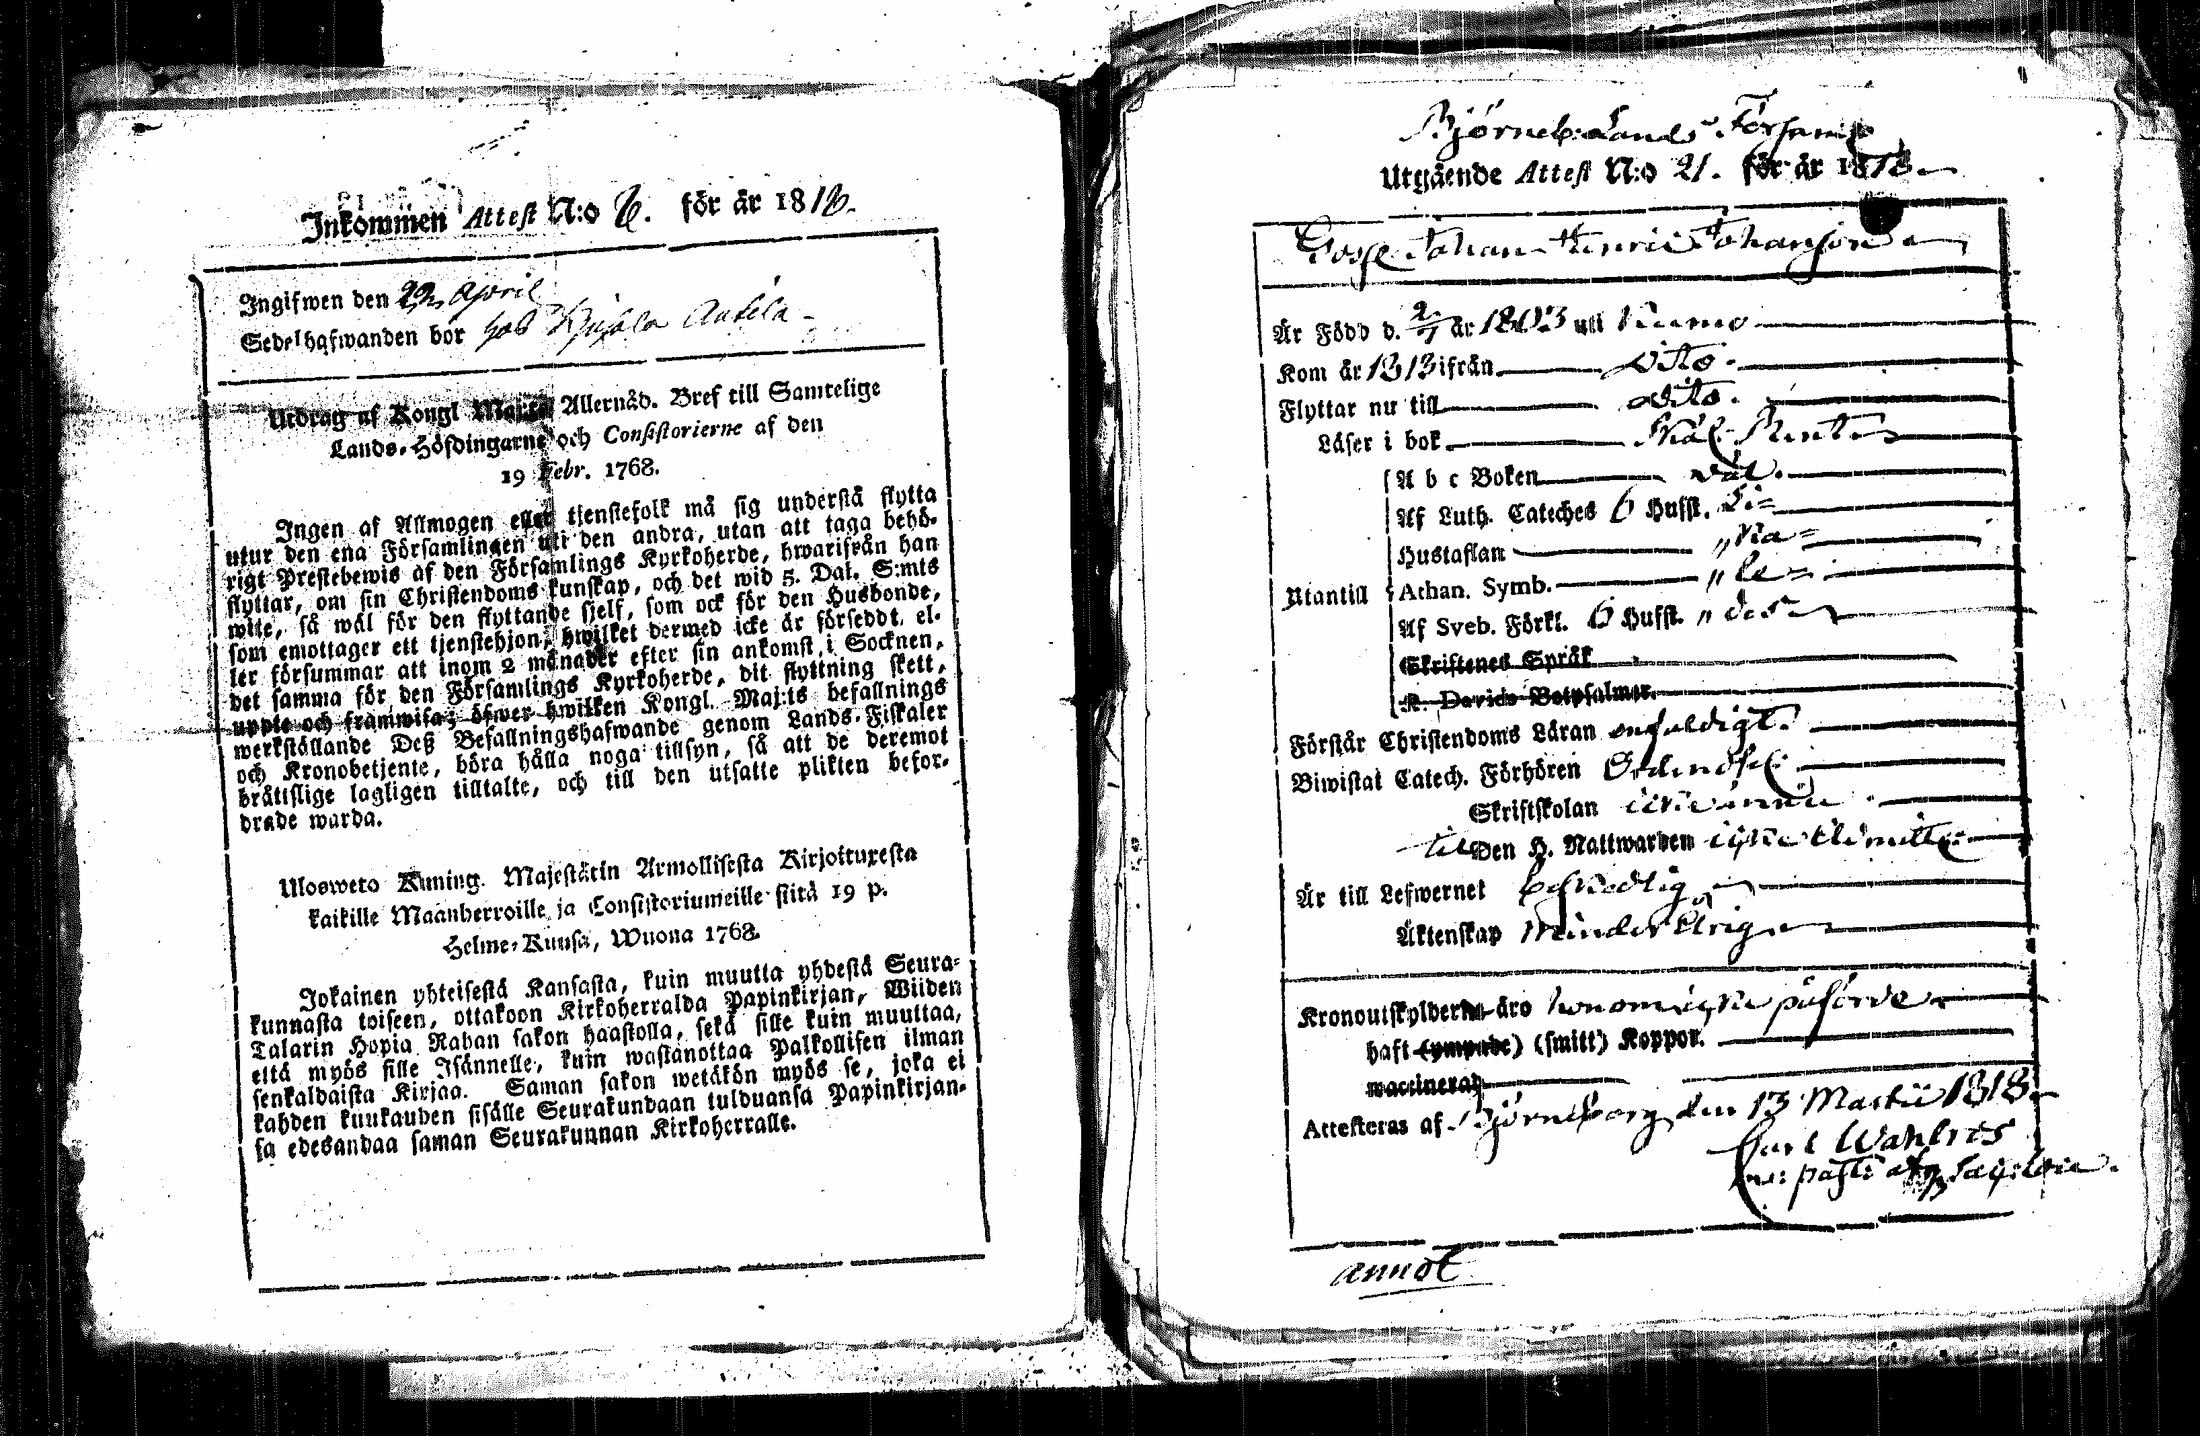 Inkommen Attest N:o 6. för år 1818.
Ingifwen den 22 April
Sedelhafwanden bor hos Anttila
Utdrag af Kongl Maj:ts Allernåd. Bref till Samtelige
Lands-Höfdingarne och Consistorierne af den
19 Febr. 1768.
Ingen af Allmogen eller tjenstefolk må sig understå flytta
utur den ena Församlingen uti den andra, utan att taga behö-
rigt Prestebewis af den Församlings Kyrkoherde, hwarifrån han
flyttar, om sin Christendoms kunskap, och det wid 5. Dal. S:mts
wite, så wäl för den flyttande sjelf, som ock för den Husbonde,
som emottager ett tjenstehjon, hwilket dermed icke är förseddt, el-
ler försummar att inom 2 månader efter sin ankomst i Socknen,
det samma för den Församlings Kyrkoherde, dit flyttning skett,
uppte och framwisa; öfwer hwilken Kongl. Maj:ts befallnings
werkställande Deß Befallningshafwande genom Lands-Fiskaler
och Kronobetjente, böra hålla noga tillsyn, så att de deremot
bråttslige lagligen tilltalte, och till den utsatte plikten befor-
drade warda.
Ulosweto Kuning. Majestätin Armollisesta Kirjoituxesta
kaikille Maanherroille ja Consistoriumeille siitä 19 p.
Helme-Kuusa, Wuona 1768.
Jokainen yhteisestä Kansasta, kuin muutta yhdestä Seura-
kunnasta toiseen, ottakoon Kirkoherralda Papinkirjan, Wiiden
Talarin Hopia Rahan sakon haastolla, sekä sille kuin muuttaa,
että myös sille Isännelle, kuin wastanottaa Palkollisen ilman
senkaldaista Kirjaa. Saman sakon wetäkön myös se, joka ei
kahden kuukauden sisälle Seurakundaan tulduansa Papinkirjan-
sa edesandaa saman Seurakunnan Kirkoherralle.
Björneb. Lands Församl
Utgående Attest N:o 21. för år 1818.
Gosse Johan Henric Johansson
Är Född d. 2/7 år 1803 uti Kumo
Kom år 1813 ifrån dito.
Flyttar nu till dito.
Läser i bok
A b c Boken väl.
Af Luth. Cateches 6 Hufst. Li=
Hustaflan „ka=
Utantill Athan. Symb. „le=
Af Sveb. Förkl. 6 Hufst. „des
Skriftenes Språk
K. Davids Botpsalmer.
Förstår Christendoms Läran enfaldigt.
Biwistat Catech. Förhören
Skriftskolan
till Den H. Nattwarden icke admitt.
Är till Lefwernet beskedlig
Äktenskap Minderårig
Kronoutskylderne äro honom icke påförde
haft (ympade) (smitt) Koppor.
waccinerad
Attesteras af Björneborg den 13 Martii 1818.
Carl Wahlros
annot